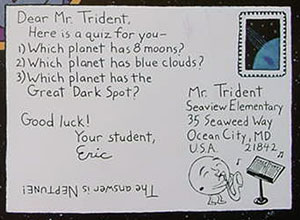 Dear Mr. Trident,
Here is a quiz for you–
1) Which planet has 8 moons?
2) Which planet has blue clouds?
3) Which planet has the
Great Dark Spot?
Good luck!
Your student,
Eric
Mr. Trident
Seaview Elementary
35 Seaweed Way
Ocean City, MD
U.S.A. 21842
The answer is NEPTUNE!